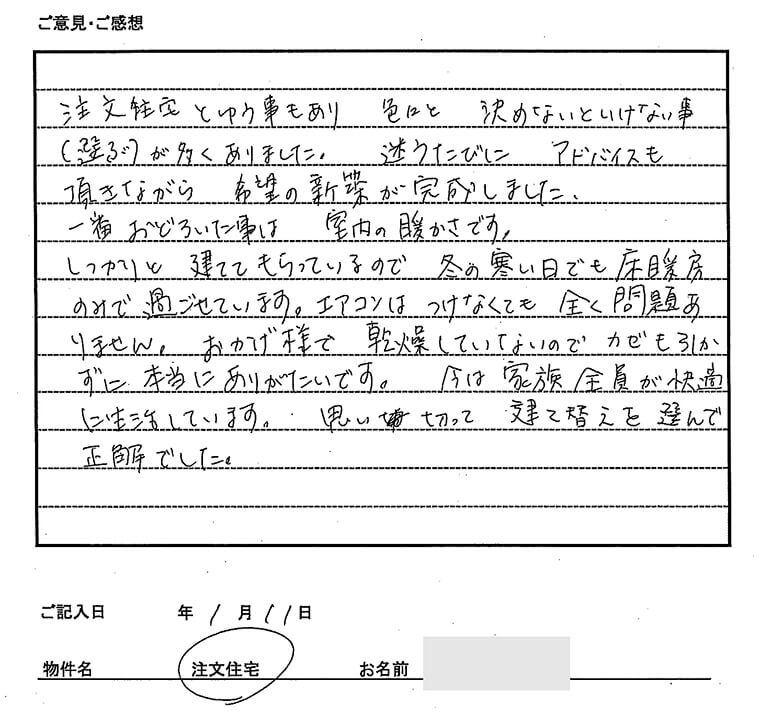 ご意見・ご感想
注文住宅とゆう事もあり 色々と 決めないといけない事
(選ぶ)が多くありました。 迷うたびに アドバイスも
頂きながら 希望の新築が完成しました。
一番おどろいた事は 室内の暖かさです。
しっかりと 建ててもらっているので 冬の寒い日でも床暖房
のみで過ごせています。エアコンは つけなくても 全く問題あ
りません。 おかげ様で 乾燥していないのでカゼも引か
ずに 本当にありがたいです。 今は 家族全員が快適
に生活しています。 思い切って 建て替えを選んで
正解でした。
ご記入日 年 1 月 11 日
物件名 注文住宅 お名前